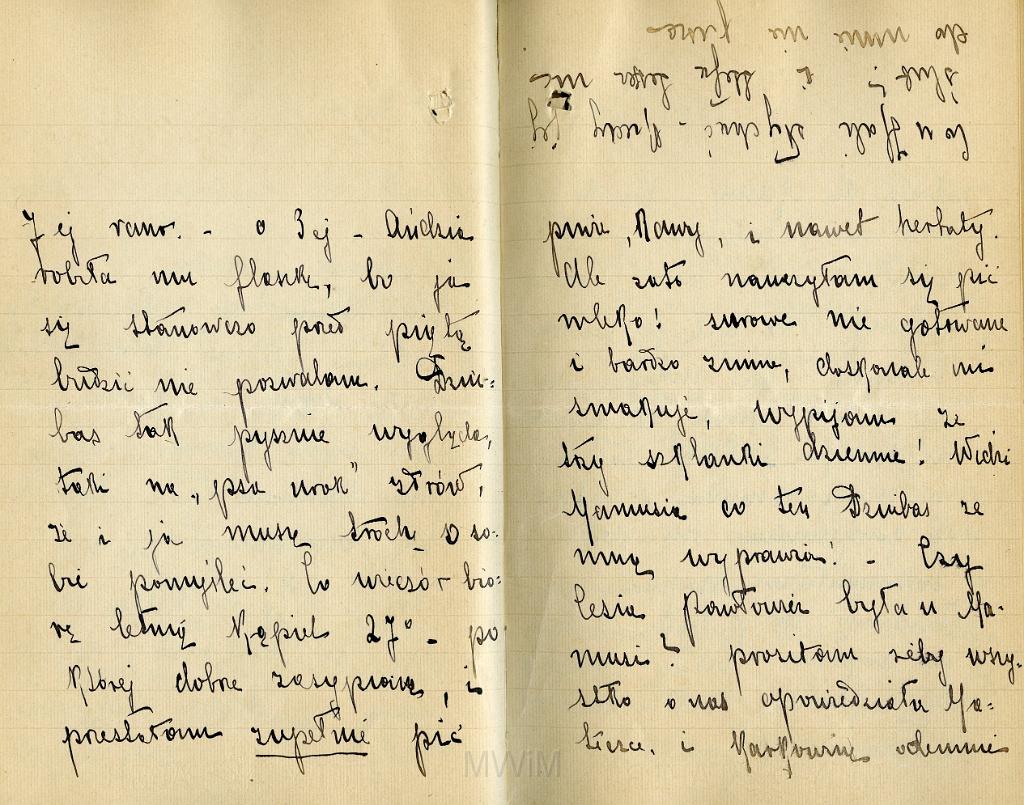 7 ej rano. - o 3 ej - Andzia
robiła mu flaskę, bo ja
się stanowczo przed piątą
budzić nie pozwalam. Dziu-
bas tak pysznie wygląda,
taki na „psa urok" zdrów,
że i ja muszę trochę o so-
bie pomyśleć. Co wieczór bio-
rę letnią kąpiel 27° - po
której dobrze zasypiam, i
przestałam zupełnie pić
piwa, kawy, i nawet herbaty.
Ale zato nauczyłam się pić
mleko! surowe nie gotowane
i bardzo zimne, doskonale mi
smakuje, wypijam ze
trzy szklanki dziennie! Widzi
Mamusia co ten Dziubas ze
mną wyprawia! - Czy
Lesia Pawłowa była u Ma-
musi? prosiłam żeby wszy-
stko o nas opowiedziała Ma-
teczce. i odemnie
Co u Hali słychać - Kiedy jej
ślub? i Stefa nic
do mnie nie pisze